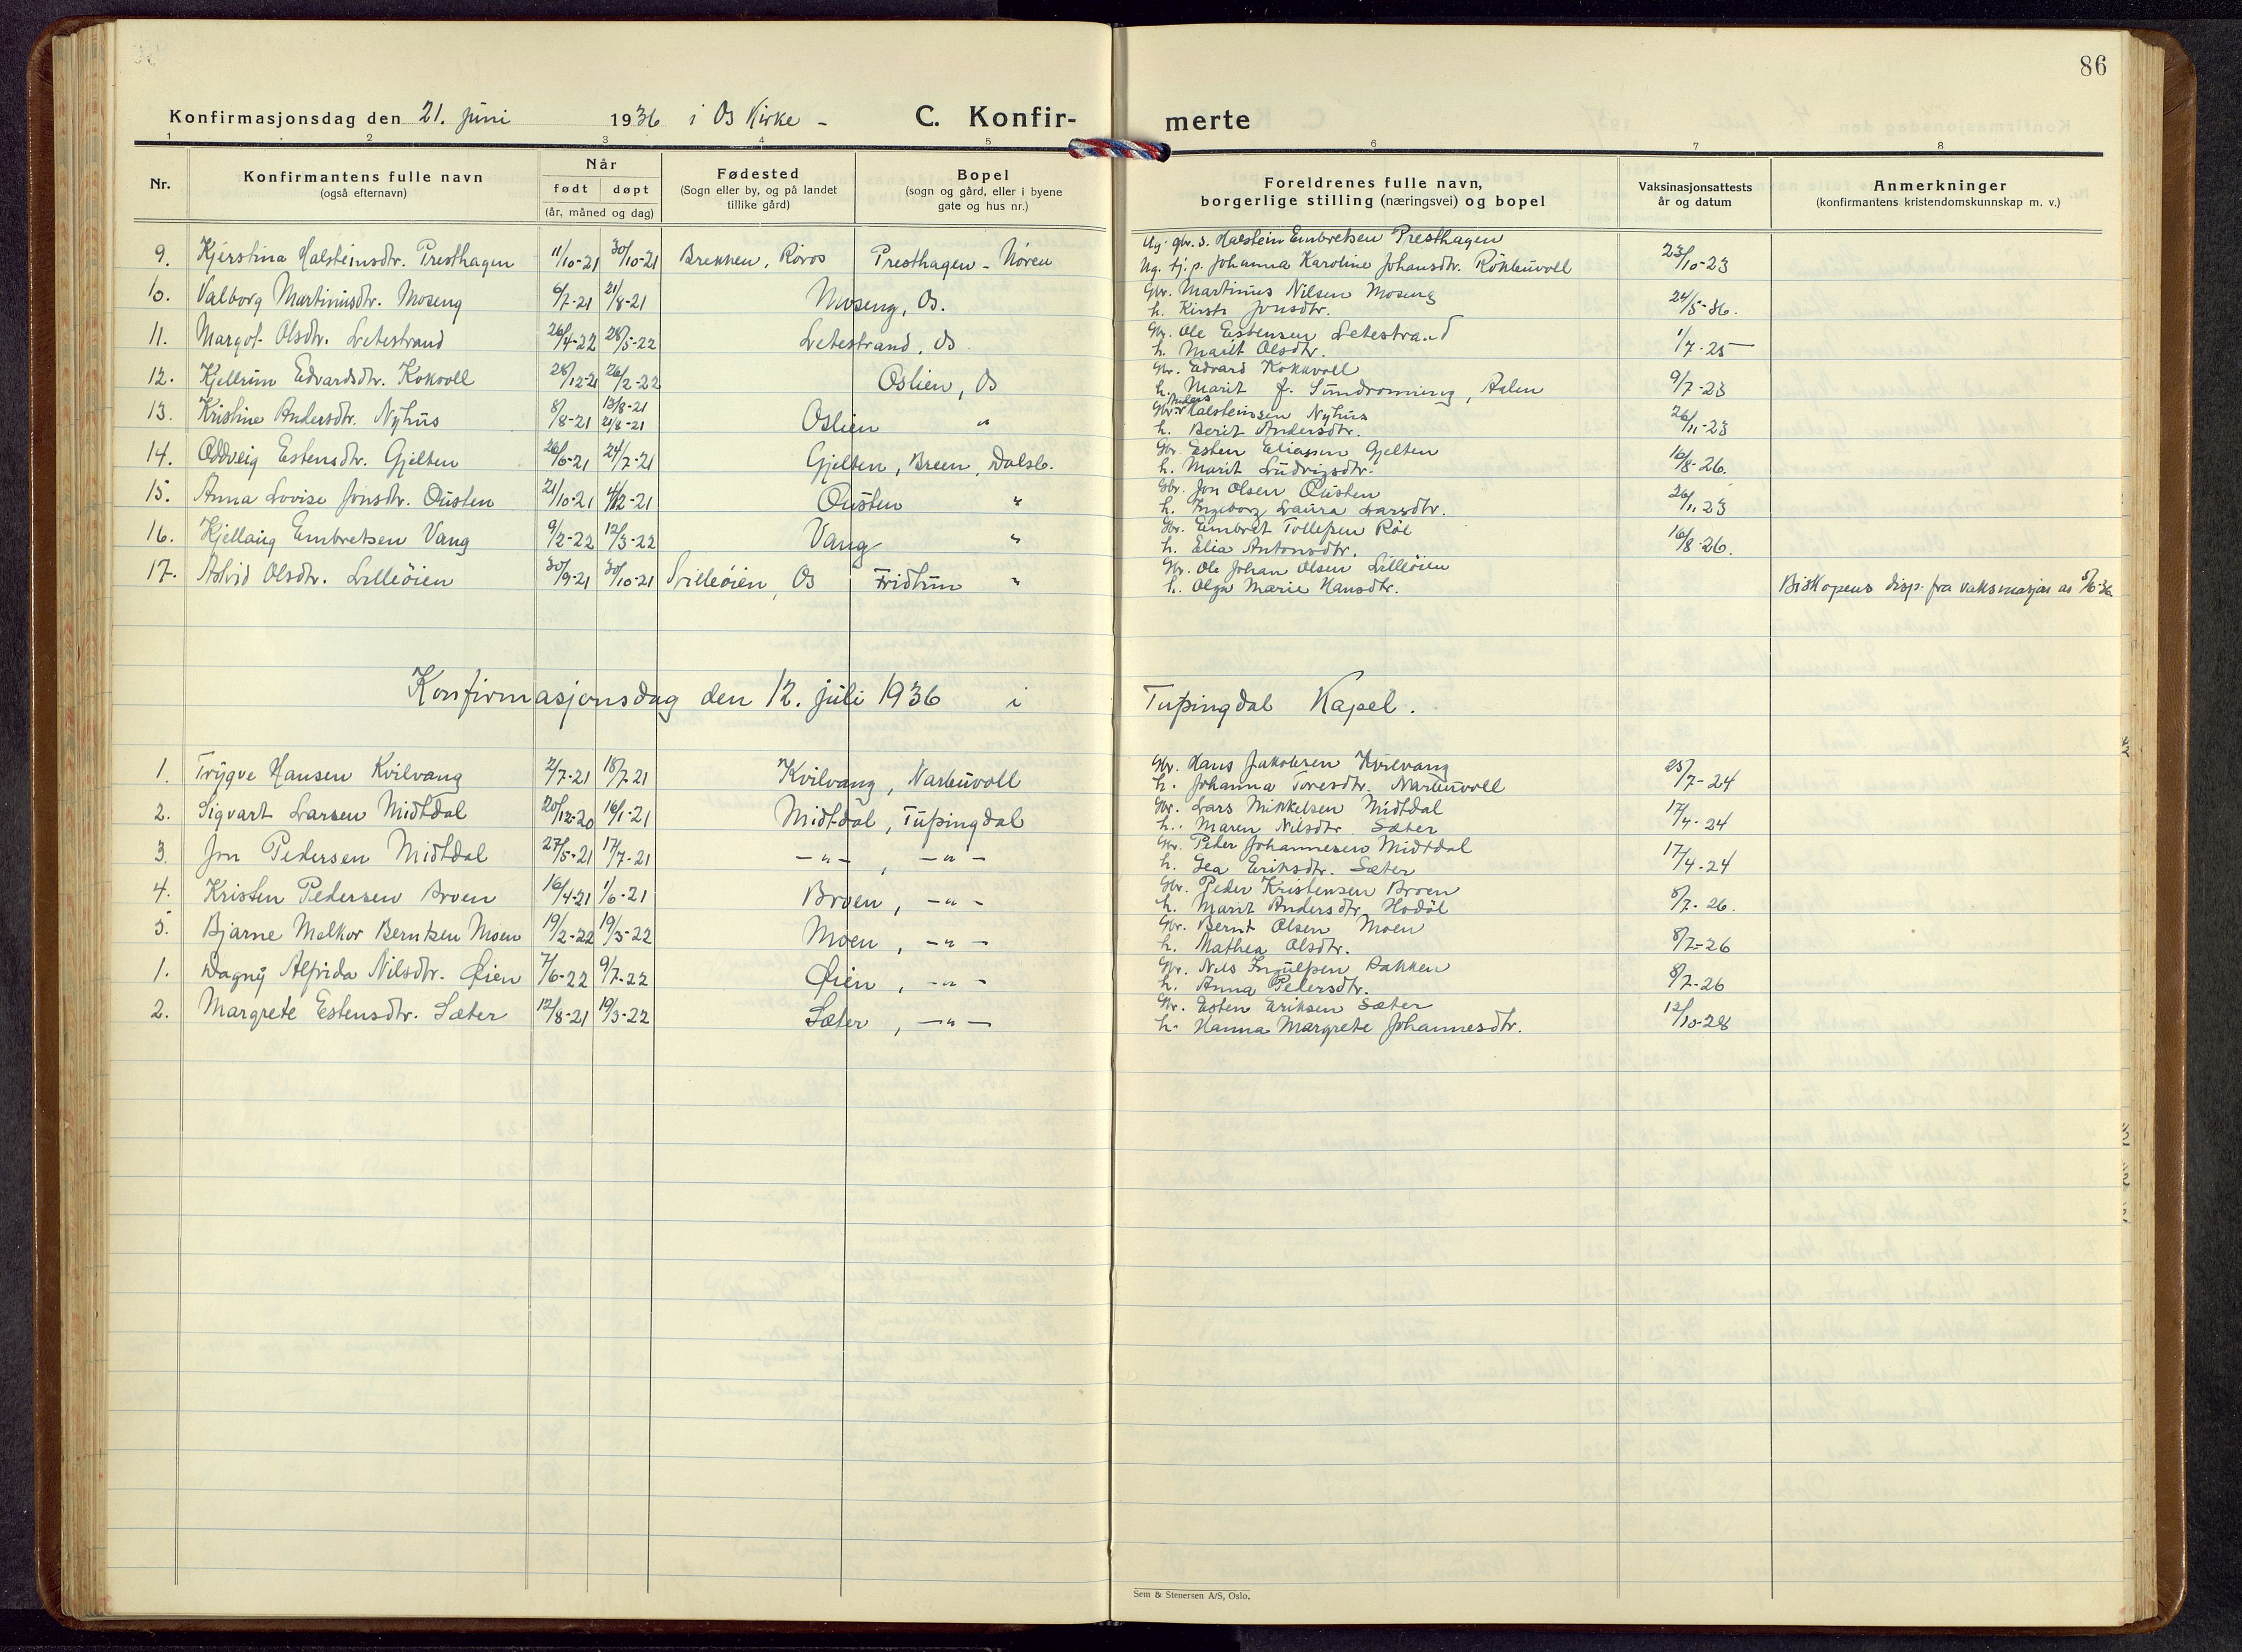 86
Konfirmasjonsdag den 21. juni 1936 i Os Kirke –
C. Konfir-
merte
1 2 3 4 5 6 7 8
Nr.
Konfirmantens fulle navn
(også efternavn)
Når
født døpt
(år, måned og dag)
Fødested
(Sogn eller by, og på landet
tillike gård)
Bopel
(sogn og gård, eller i byene
gate og hus nr.)
Foreldrenes fulle navn,
borgerlige stilling (næringsvei) og bopel
Vaksinasjonsattests
år og datum
Anmerkninger
(konfirmantens kristendomskunnskap m. v.)
9. Kjerstina Halsteinsdtr. Presthagen 11/10-21 30/10-21 Brekken, Röros Presthagen - Nören Ug. gbr. s. Halstein Embretsen Presthagen 23/10-23
Ug. tj. p. Johanna Karoline Johansdtr. Rökkuvoll
10. Valborg Martinusdtr. Moseng 6/7-21 21/8-21 Moseng, Os. Gbr. Martinus Nilsen Moseng 24/5-36.
h. Kirsti Jonsdtr.
11. Margot Olsdtr. Letestrand 26/4-22 28/5-22 Letestrand, Os Gbr. Ole Estensen Letestrand 1/7-25
h. Marit Olsdtr.
12. Kjellrun Edvardsdtr. Kokvoll 28/12-21 26/2-22 Oslien, Os Gbr. Edvard Kokkvoll 9/7-23
h. Marit f. Sundronning, Aalen
13. Kristine Andersdtr. Nyhus 8/8-21 13/8-21 21/8-21 Oslien " Gbr. Anders Halsteinsen Nyhus 26/11-23
h. Berit Andersdtr.
14. Oddveig Estensdtr. Gjelten 26/6-21 24/7-21 Gjelten, Breen, Dalsb. Gbr. Esten Eliassen Gjelten 16/8-26.
h. Marit Ludvigsdtr.
15. Anna Lovise Jonsdtr. Ousten 21/10-21 4/12-21 Ousten " Gbr. Jon Olsen Ousten 26/11 23
h. Ingeborg Laura Larsdtr.
16. Kjellaug Embretsen Vang 9/2-22 12/3-22 Vang " Gbr. Embret Tollefsen Röe 16/8-26.
h. Elia Antonsdtr.
17. Astrid Olsdtr. Lilleöien 30/9-21 30/10-21 Lilleöien, Os Fridtun " Gbr. Ole Johan Olsen Lilleöien
h. Olga Marie Hansdtr. Biskopens disp. fra vaksinasjon av 5/6-36
Konfirmasjonsdag den 12. juli 1936 i Tufsingdal Kapel.
1. Trygve Hansen Kvilvang 2/7-21 18/7-21 Kvilvang, Narbuvoll Gbr. Hans Jakobsen Kvilvang 25/7-24
h. Johanna Toresdtr. Narbuvoll
2. Sigvart Larsen Midtdal 20/12-20 16/1-21 Midtdal, Tufsingdal Gbr. Lars Mikkelsen Midtdal 17/4-24
h. Maren Nilsdtr. Sæter
3. Jon Pedersen Midtdal 27/5-21 17/7-21 –"– , –"– Gbr. Peder Johannesen Midtdal 17/4-24
h. Gea Eriksdtr. Sæter
4. Kristen Pedersen Broen 16/4-21 1/6-21 Broen, –"– Gbr. Peder Kristensen Broen 8/7-26.
h. Marit Andersdtr. Hodöl
5. Bjarne Melkor Berntsen Moen 19/2-22 19/3-22 Moen, –"– Gbr. Bernt Olsen Moen 8/7-26
h. Mathea Olsdtr.
1. Dagny Alfrida Nilsdtr. Øien 7/6-22 9/7-22 Øien, –"– Gbr. Nils Ingulfsen Bakken 8/7-26
h. Anna Pedersdtr.
2. Margrete Estensdtr. Sæter 12/8-21 19/3-22 Sæter, –"– Gbr. Esten Eriksen Sæter 12/10-28
h. Hanna Margrete Johannesdtr.
Sem & Stenersen A/S, Oslo.